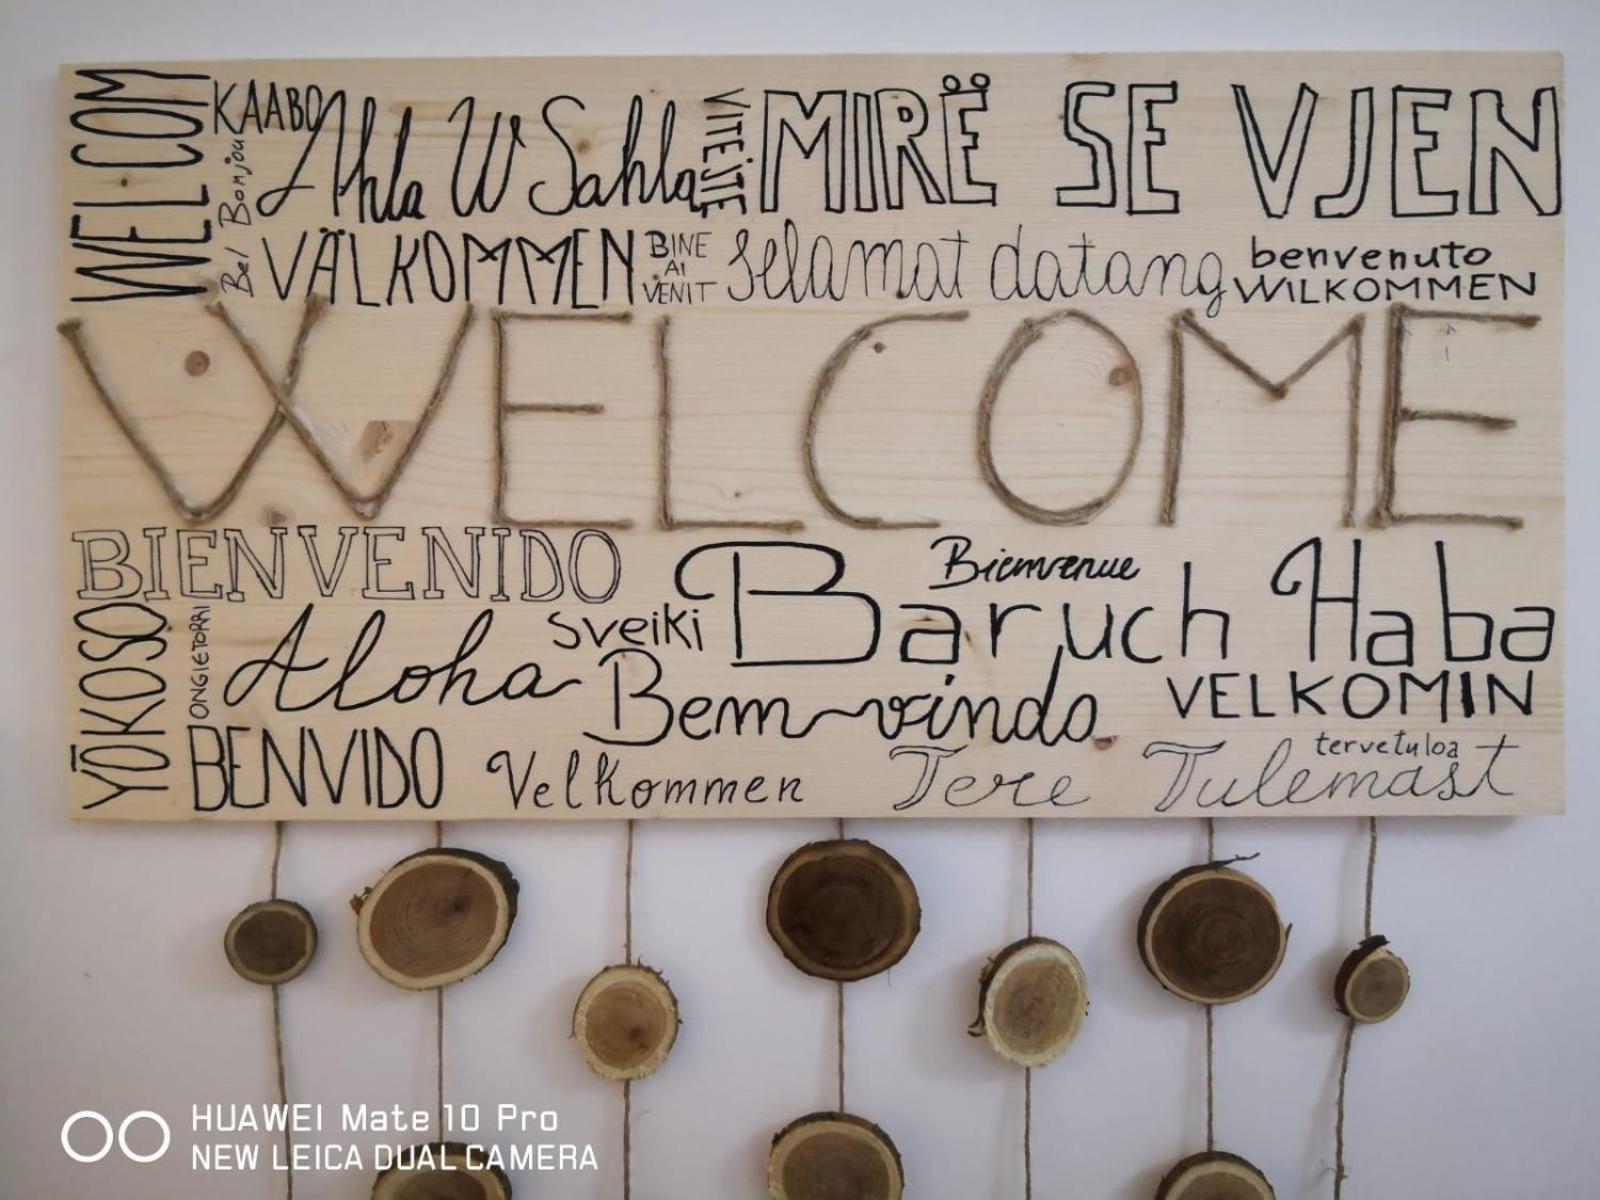 WELCOM
KAABO
Bel Bonjou
Ahla W Sahla
VITEJTE
MIRË SE VJEN
VÄLKOMMEN
BINE
AI
VENIT
Selamat datang
benvenuto
WILKOMMEN
WELCOME
BIENVENIDO
Bienvenue
Baruch Haba
YŌKOSO
ONGIETORRI
Aloha
sveiki
Bem-vindo
VELKOMIN
BENVIDO
Velkommen
Tere Tulemast
tervetuloa
HUAWEI Mate 10 Pro
NEW LEICA DUAL CAMERA